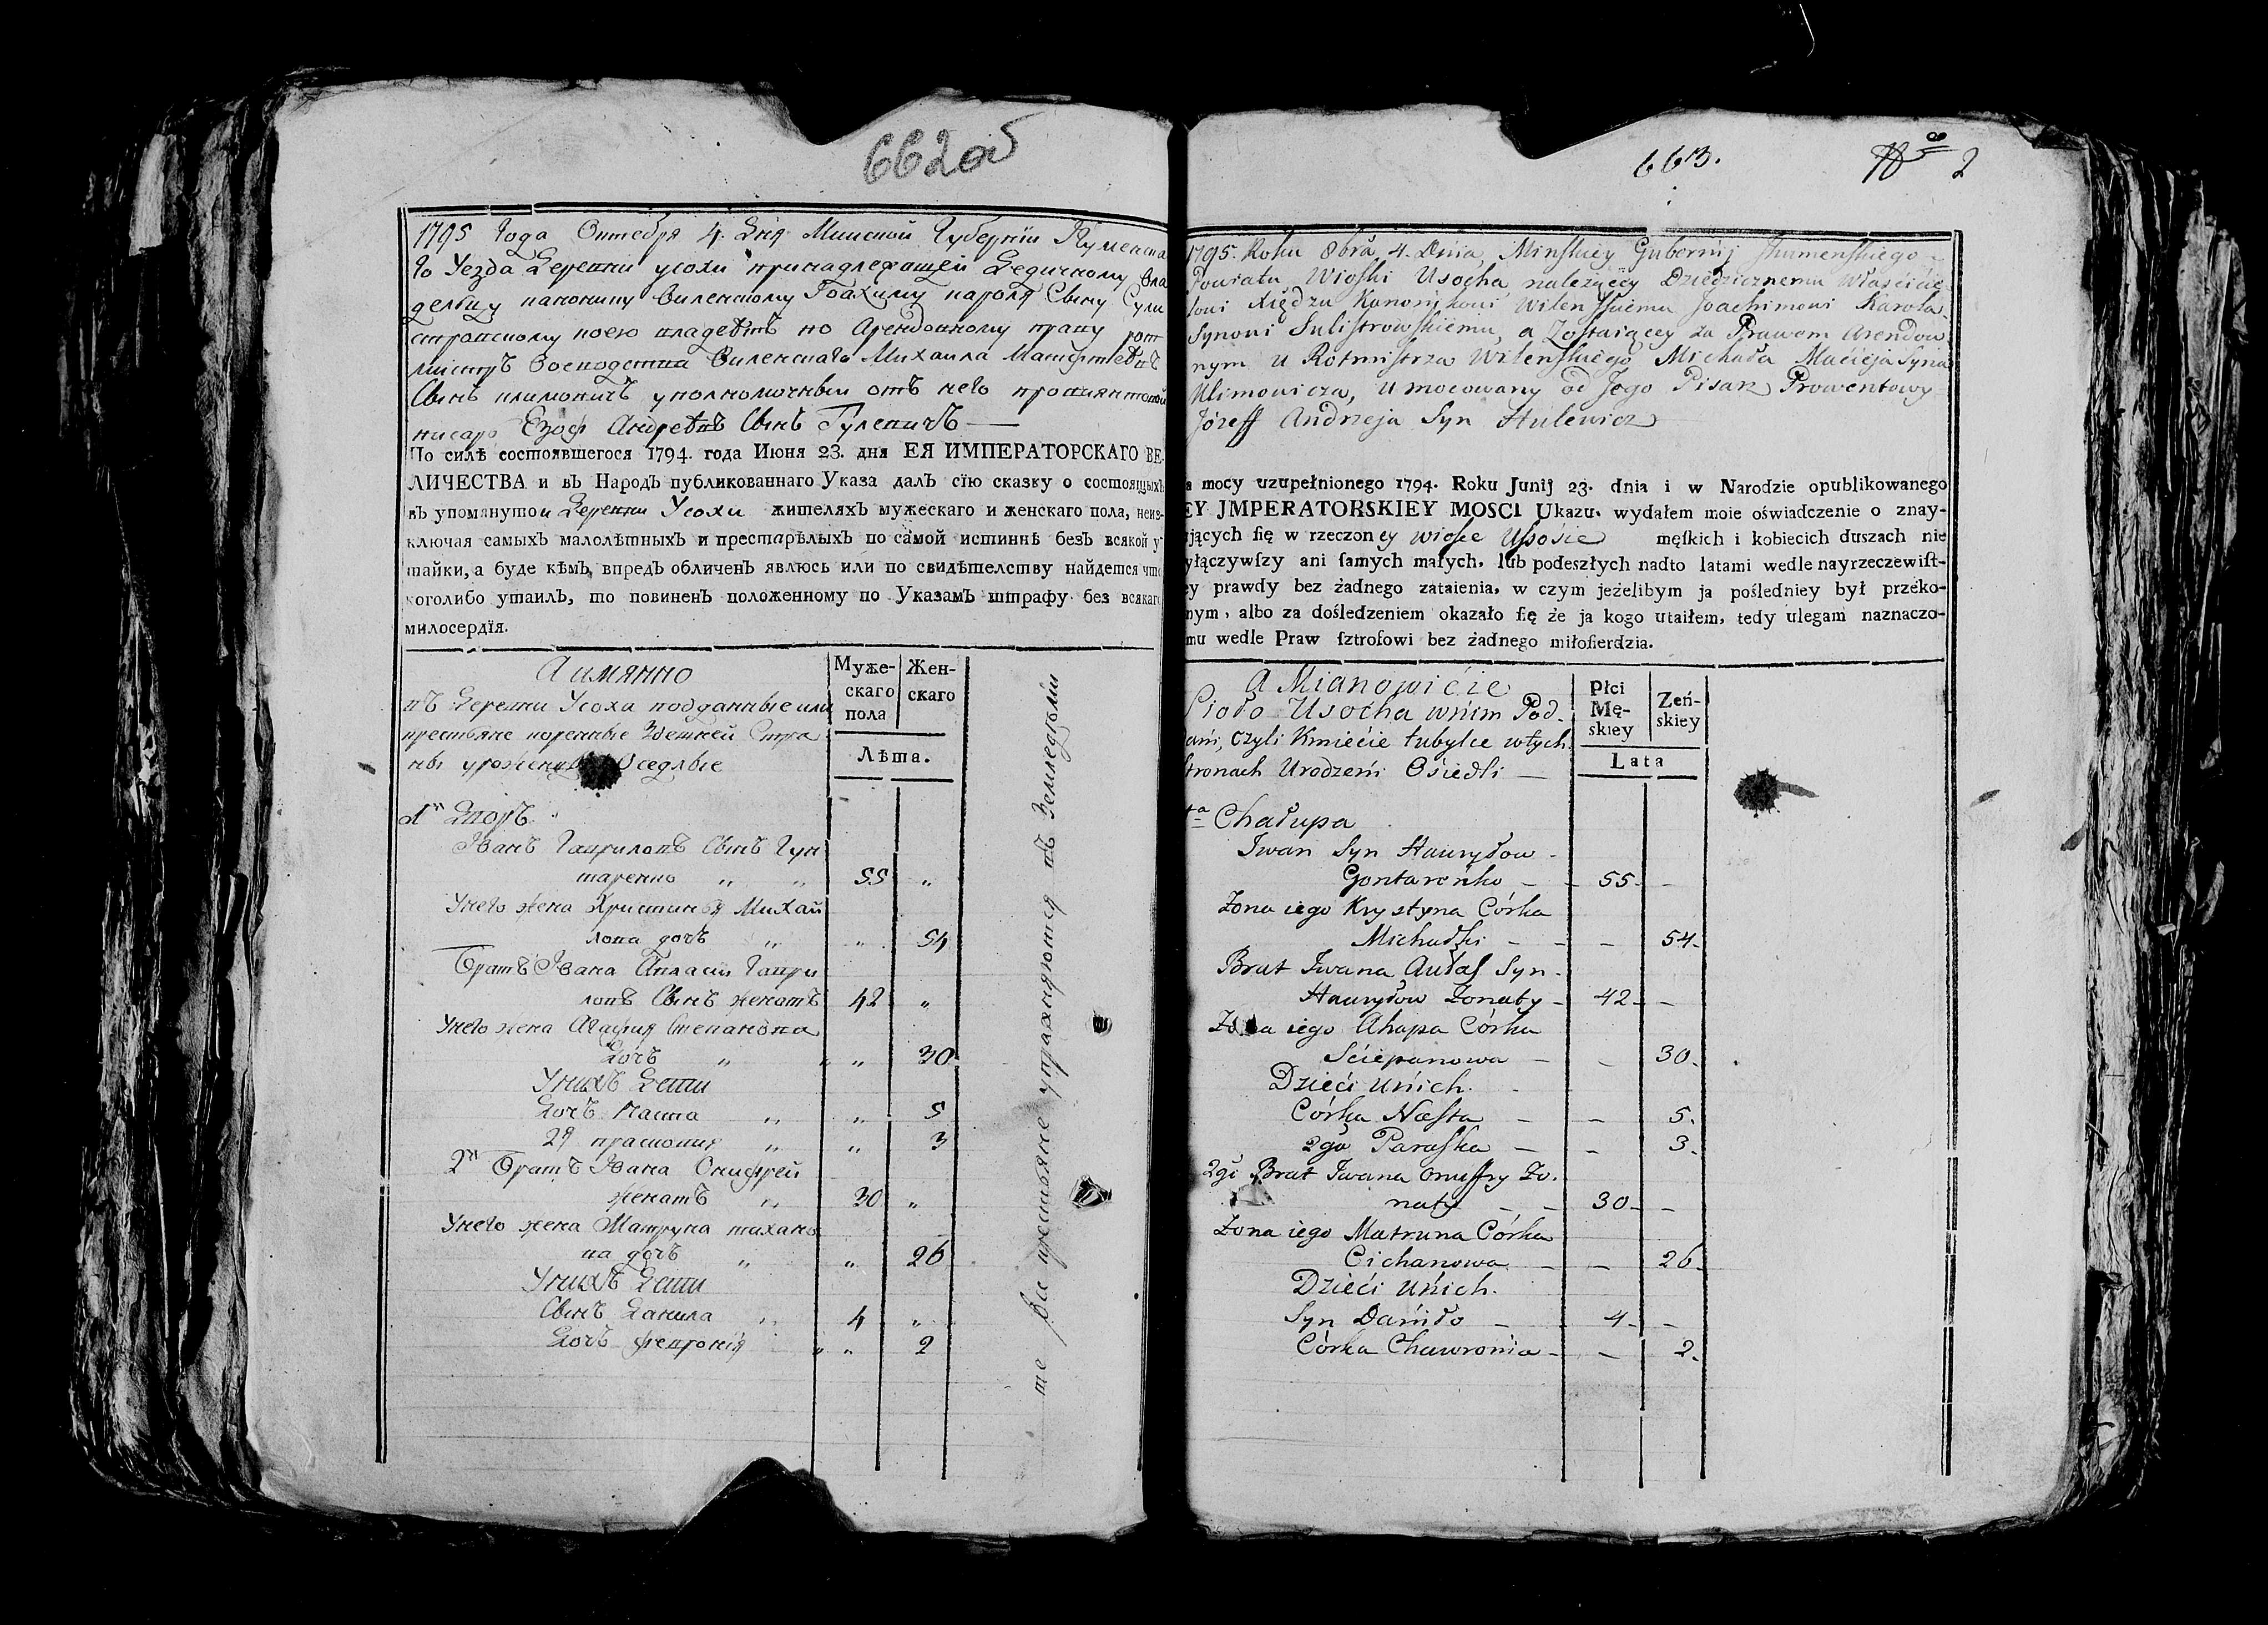 662об
1795 Года Октебря 4. Дня Минской Губерніи Игуменска
го Уезда Деревни усохи принадлежащей Дедичному Вла
дельцу каноніку Виленскому Іоахиму кароля Сыну Сули
стровскому коею владеетъ по Арендовному праву рот
мистръ Воеводства Виленскаго Михаила Матфеевъ
Сынъ климовичъ уполномочный отъ него провиянтовой
писарь Езоф Андреевъ Сынъ Гулевичъ
По силѣ состоявшегося 1794. года Июня 23. дня ЕЯ ИМПЕРАТОРСКАГО ВЕ-
ЛИЧЕСТВА и въ Народъ публикованнаго Указа далъ сїю сказку о состоящыхъ
въ упомянутои Деревни Усохи жителяхъ мужескаго и женскаго пола, неиз-
ключая самыхъ малолѣтныхъ и престарѣлыхъ по самой истиннѣ безъ всякой у-
тайки, а буде кѣмъ впредъ обличенъ явлюсь или по свидѣтелству найдется что
коголибо утаилъ, то повиненъ положенному по Указамъ штрафу без всякаго
милосердїя.
А имянно
въ Деревни Усоха подданные или
крестьяне коренные Здешней Стра
ны Оседлые
Муже-
скаго
пола
Жен-
скаго
Лѣта.
1й Дворъ
Іванъ Гавриловъ Сынъ Гун
таренко " " 55 "
Унего жена Христинья Михай
лова дочъ " " 54
Братъ Івана Авласъ Гаври
ловъ Сынъ женатъ 42 "
Унего жена Агафия Степанова
Дочъ " " " 30
Унихъ Дети
Дочъ Наста " " 5
2я прасковия " " 3
2й Братъ Івана Онифрей
женатъ " 30 "
Унего жена Матруна тихано
ва дочъ " " 26
Унихъ Дети
Сынъ Данила " 4 "
Дочъ февронія " " 2
те все крестьяне упражняются въ Земледелии
663. No 2
1795. Roku 8bra 4. Dnia, Minskiey Guberńij Ihumenskiego
Powiatu Wioski Usocha należącey Dziedzicznemu Właścicie
lowi Xiędzu Kanonikowi Wilenskiemu Joachimowi Karola
Synowi Sulistrowskiemu, a Zostaiącey za Prawem Arendow
nym u Rotmistrza Wilenskiego Michała Macieja Syna
Klimowicza, Umocowany od Jego Pisarz Prowentowy
Józeff Andrzeja Syn Hulewicz
a mocy uzupełnionego 1794. Roku Junij 23. dnia i w Narodzie opublikowanego
EY JMPERATORSKIEY MOSCI Ukazu, wydałem moie oświadczenie o znay-
ujących się w rzeczoney wiosce Usosie męskich i kobiecich duszach nie
yłączywszy ani samych małych, lub podeszłych nadto latami wedle nayrzeczewist-
ey prawdy bez żadnego zataienia, w czym jeżelibym ja pośledniey był przeko-
nym, albo za dośledzeniem okazało się że ja kogo utaiłem, tedy ulegam naznaczo-
mu wedle Praw sztrofowi bez żadnego miłosierdzia.
A Mianowicie
Sioło Usocha wnim Pod-
ani, czyli Kmiecie tubylce wtych
stronach Urodzeni Osiedli
płci
Mę-
skiey
Zeń-
skiey
Lata
1a Chałupa
Iwan Syn Hauryłow
Gontarenko 55
Żona iego Krystyna Córka
Michałki 54
Brat Iwana Aułas Syn
Hauryłow Żonaty 42
Żona iego Ahapa Córka
Sciepanowa 30
Dzieci Unich.
Córka Nasta 5
2ga Paraska 3
2gi Brat Iwana Onuffry Żo-
naty 30
Żona iego Matruna Córka
Cichanowa 26
Dzieci Unich.
Syn Daniło 4
Córka Chawronia 2